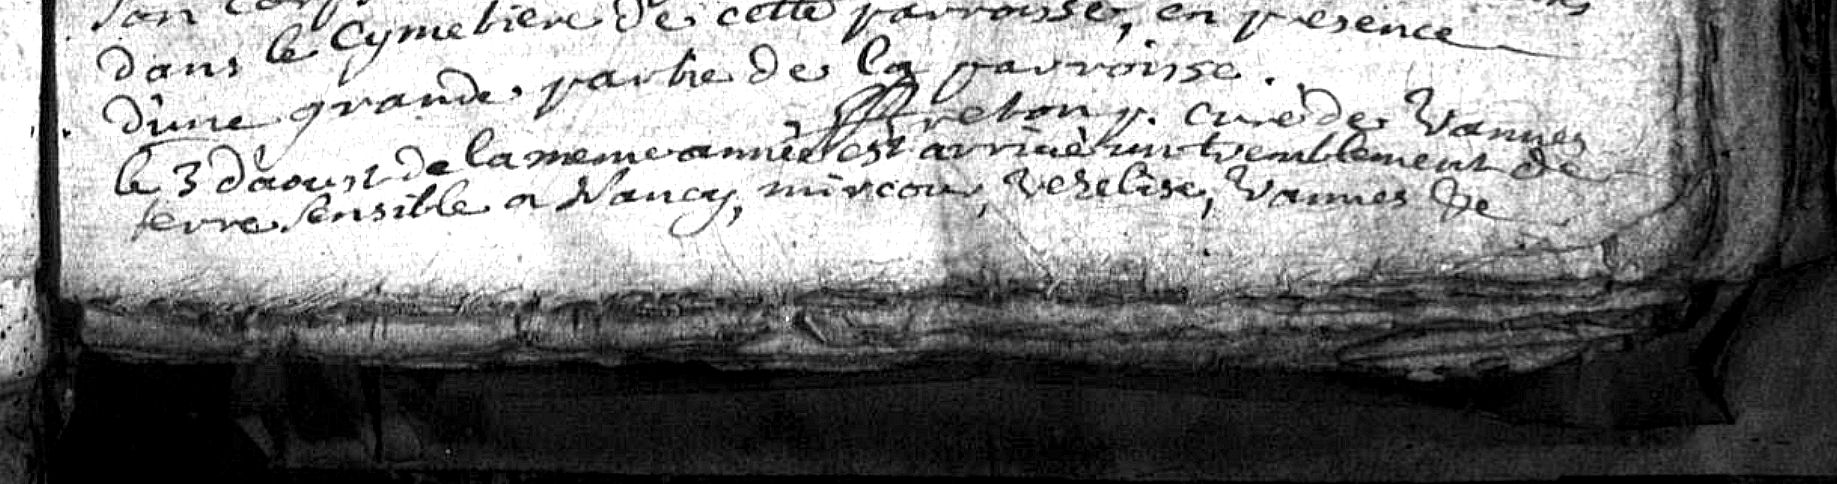 son corps
dans le Cymetiere de cette parroisse, en presence
d'une grande partie de la parroisse.
Breton p. curé de Vannes
le 3 d'aoust de la meme année est arrivé un tremblement de
terre sensible a Nancy, mircour, vezelise, Vannes &c